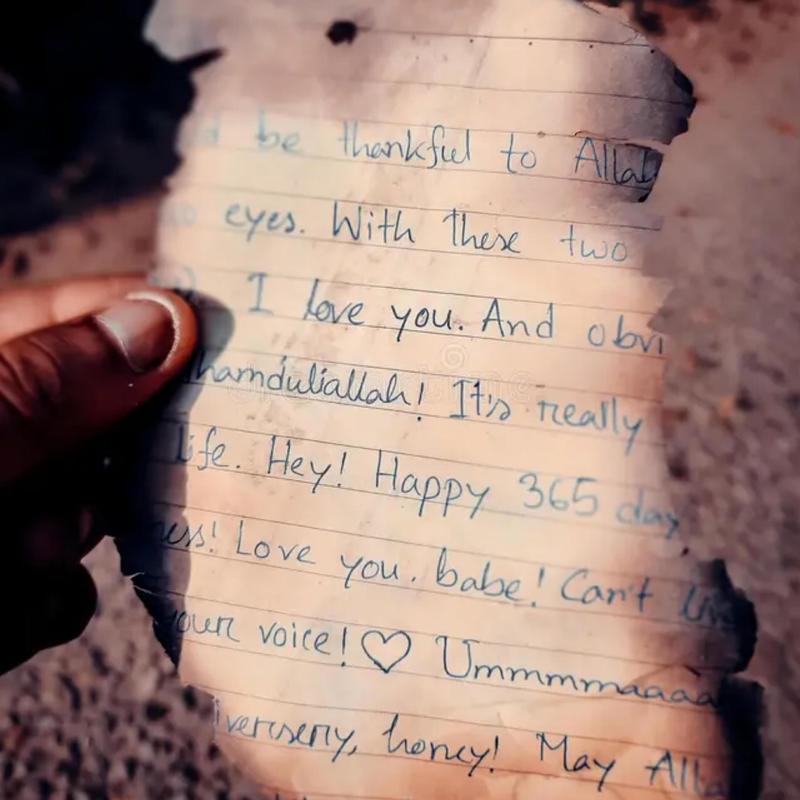 be thankful to Allah
eyes. With these two
I love you. And obvi
hamduliallah! It's really
life. Hey! Happy 365 day
ness! Love you. babe! Can't live
your voice!♡ Ummmmaaaa
iversery, honey! May Alla